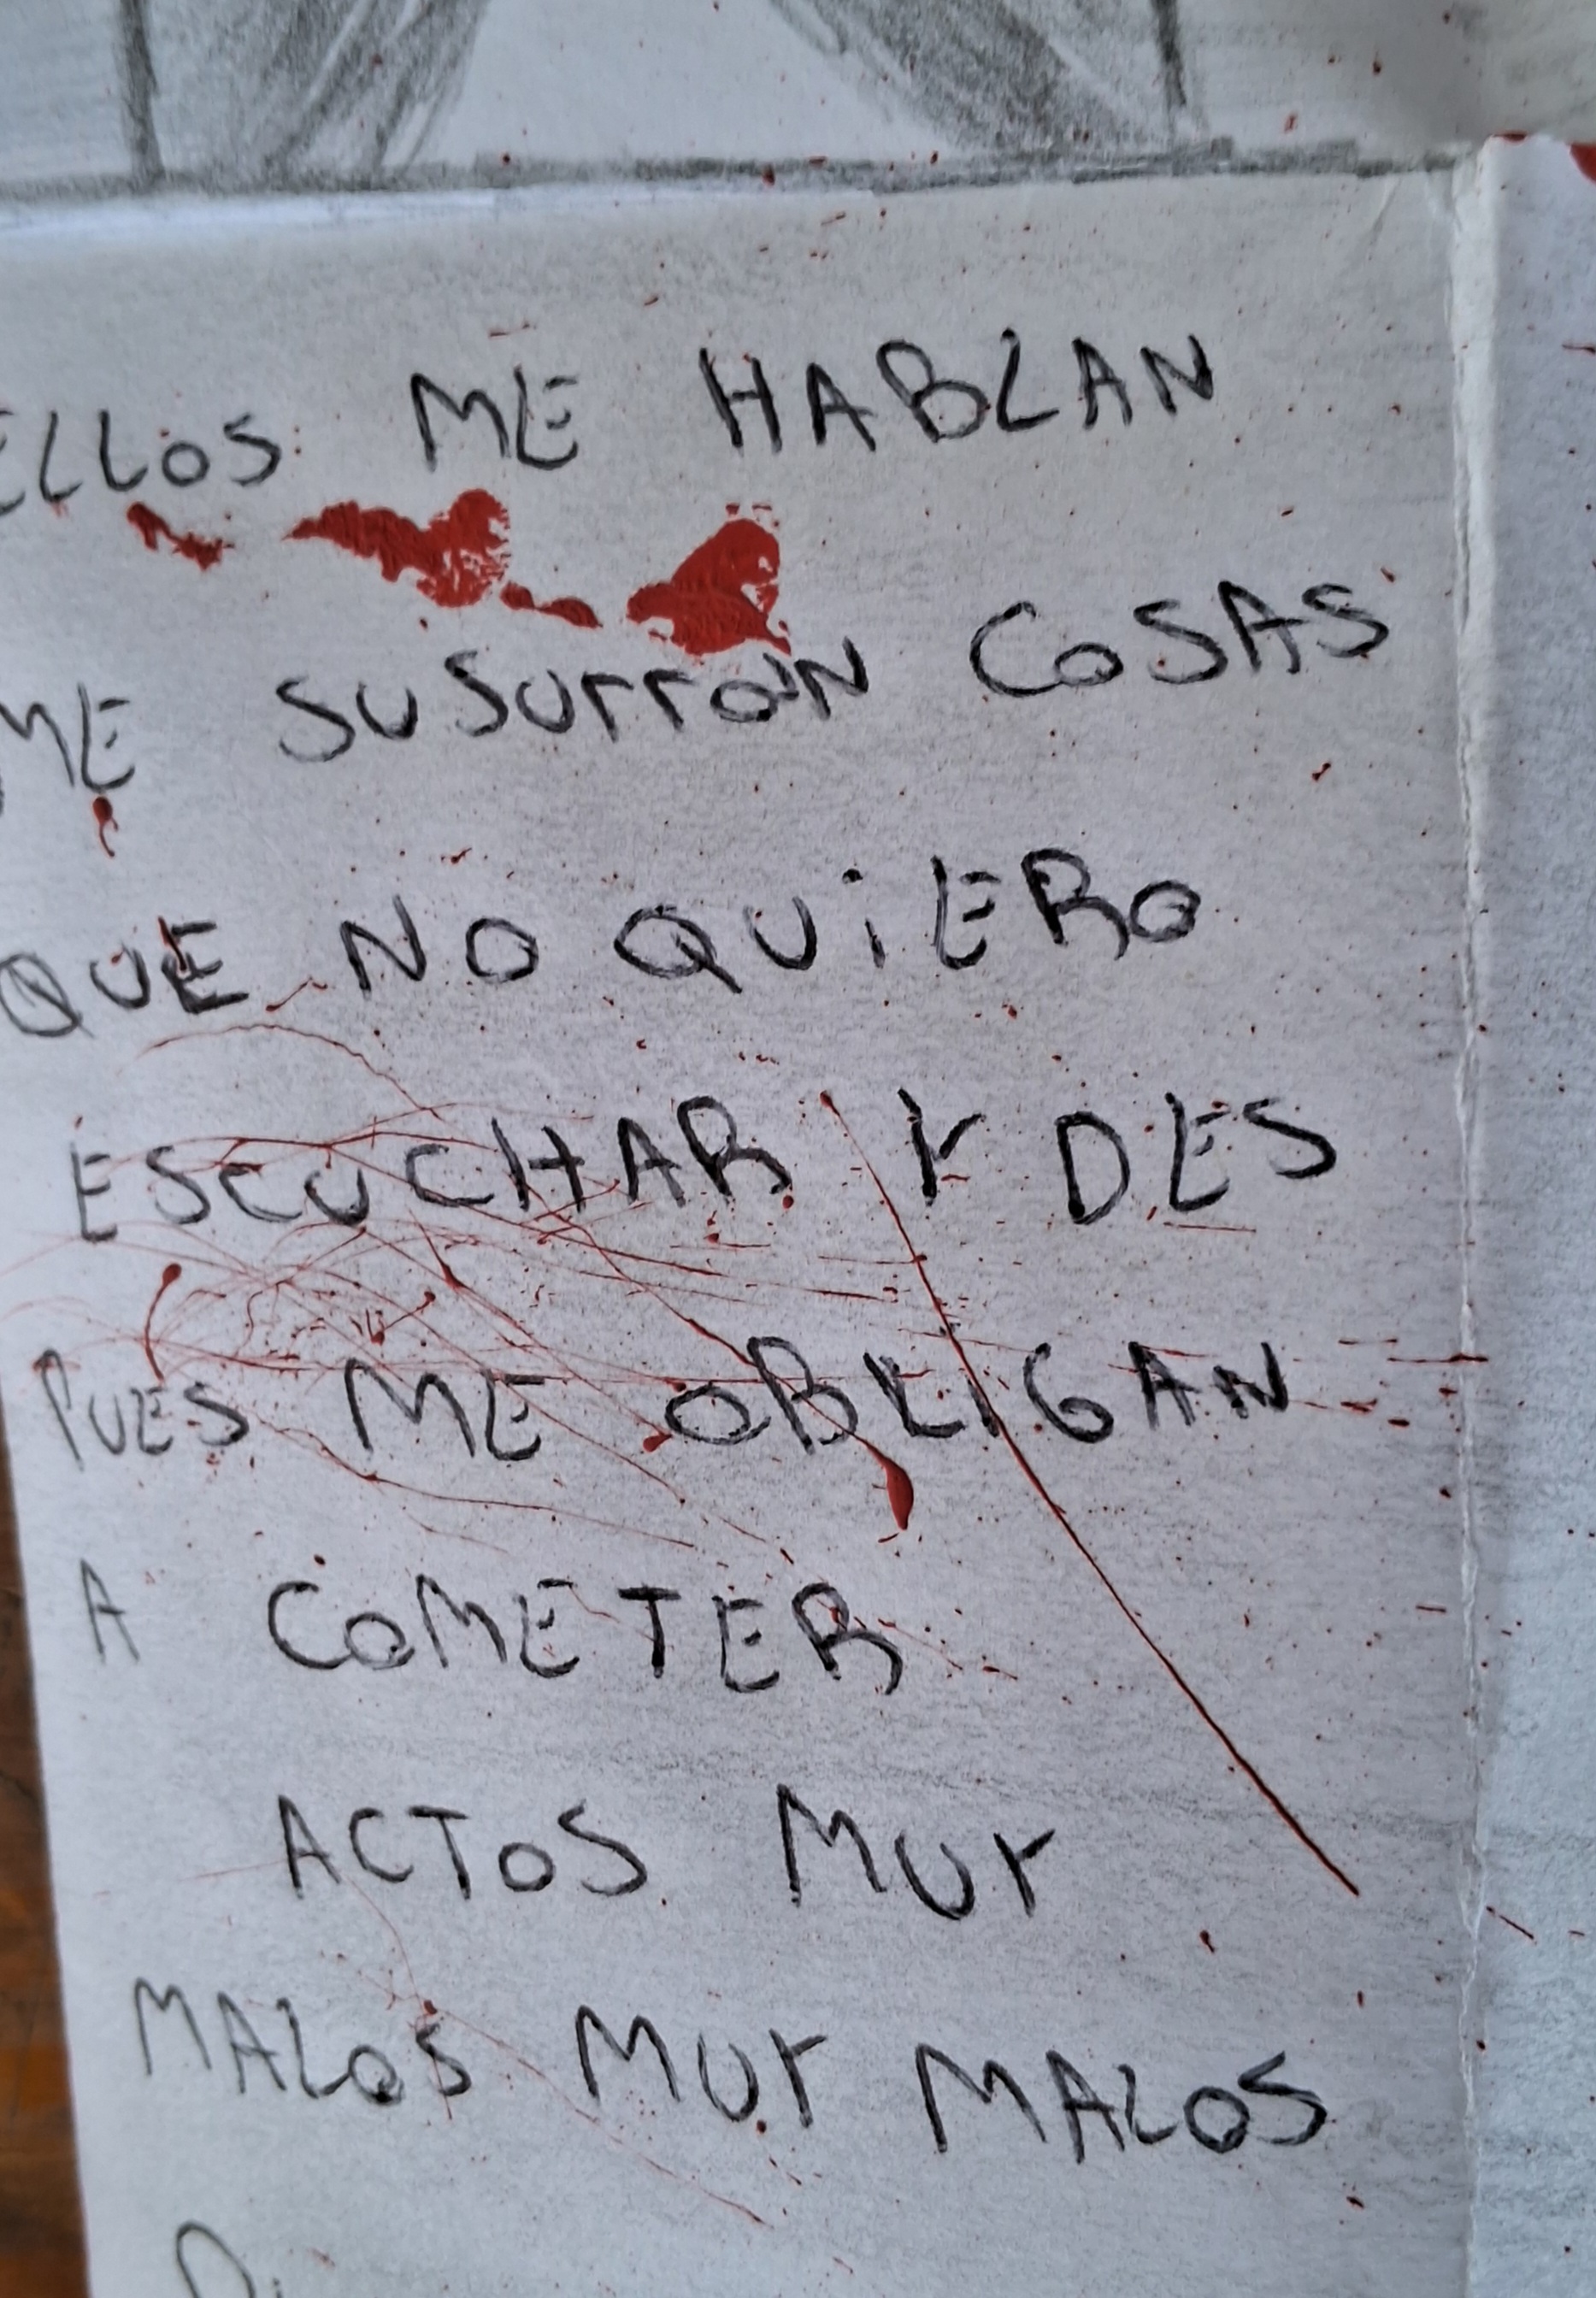 ELLOS ME HABLAN
ME SUSURRAN COSAS
QUE NO QUIERO
ESCUCHAR Y DES
PUES ME OBLIGAN
A COMETER
ACTOS MUY
MALOS MUY MALOS